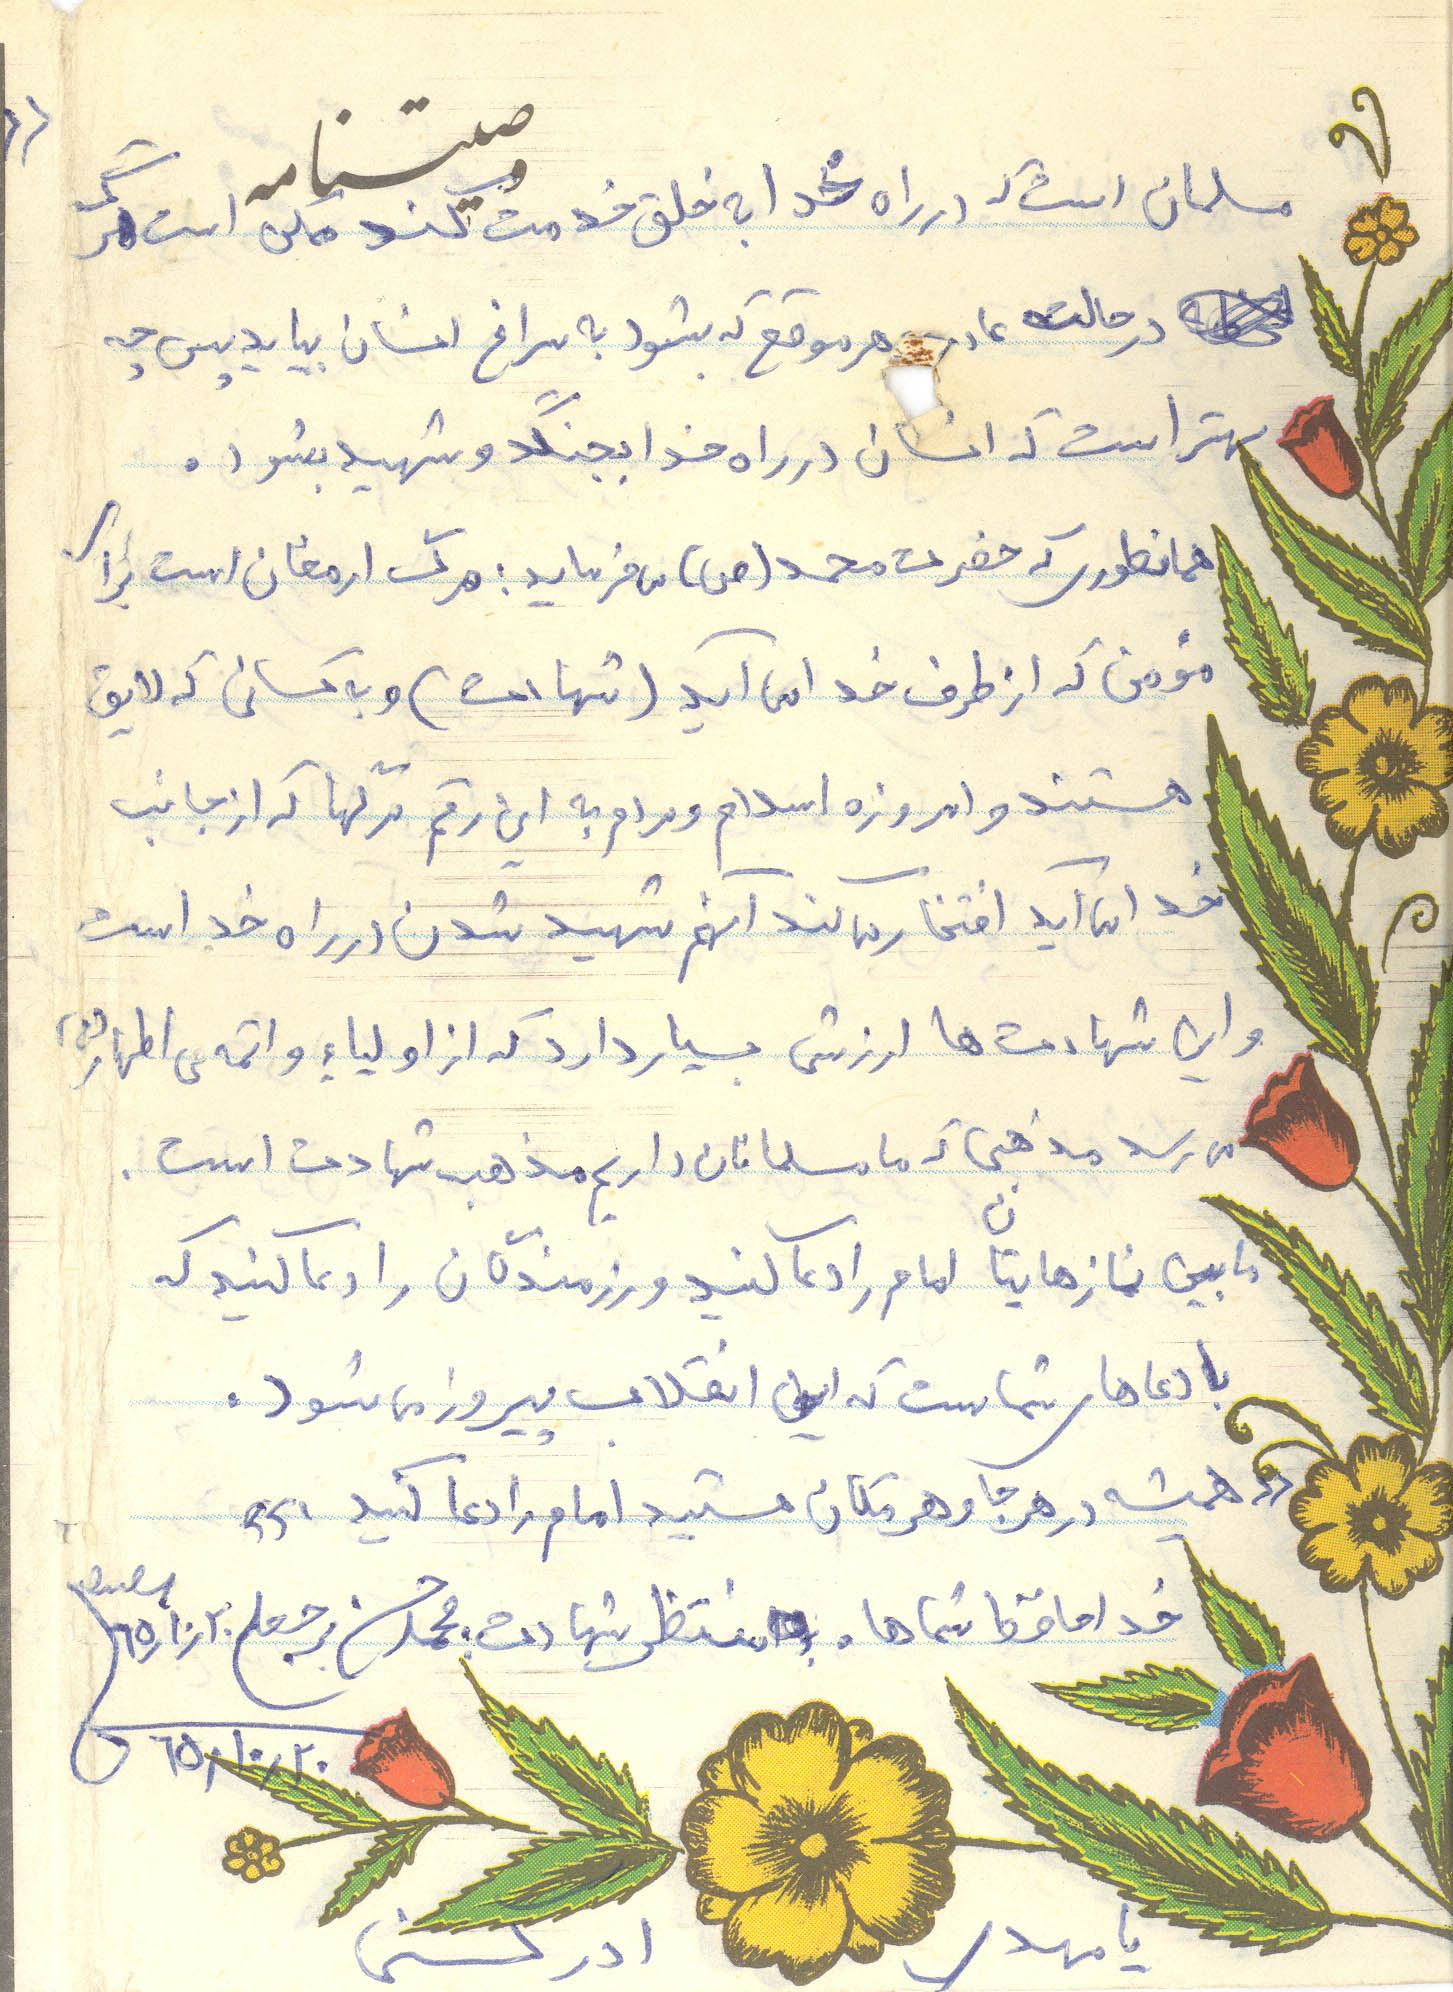 وصیتنامه
مسلمان است که در راه خدا به خلق خدمت کند ممکن است مرگ
در حالت عادی هر موقع که بشود به سراغ انسان بیاید پس چه
بهتر است که انسان در راه خدا بجنگد و شهید بشود.
همانطوری که حضرت محمد (ص) می فرماید: مرگ ارمغان است برای
مؤمن که از طرف خدا می آید (شهادت) و به کسانی که لایق
هستند و امروزه اسلام و مردم به این رقم مرگها که از جانب
خدا می آید افتخار می کند آنهم شهید شدن در راه خداست
و این شهادت ها ارزش بسیار دارد که از اولیاء و ائمه ی اطهار (ع)
می رسد مذهبی که ما مسلمانان داریم مذهب شهادت است.
مابین نمازهایتان امام را دعا کنید و رزمندگان را دعا کنید که
با دعاهای شماست که این انقلاب پیروز می شود.
«همیشه در هر جا و هر مکان هستید امام را دعا کنید»
خدا حافظ شماها. منتظر شهادت: محمد حسن رجبعلی ٦٥/١٠/٢٠
٦٥/١٠/٢٠
یا مهدی ادرکنی